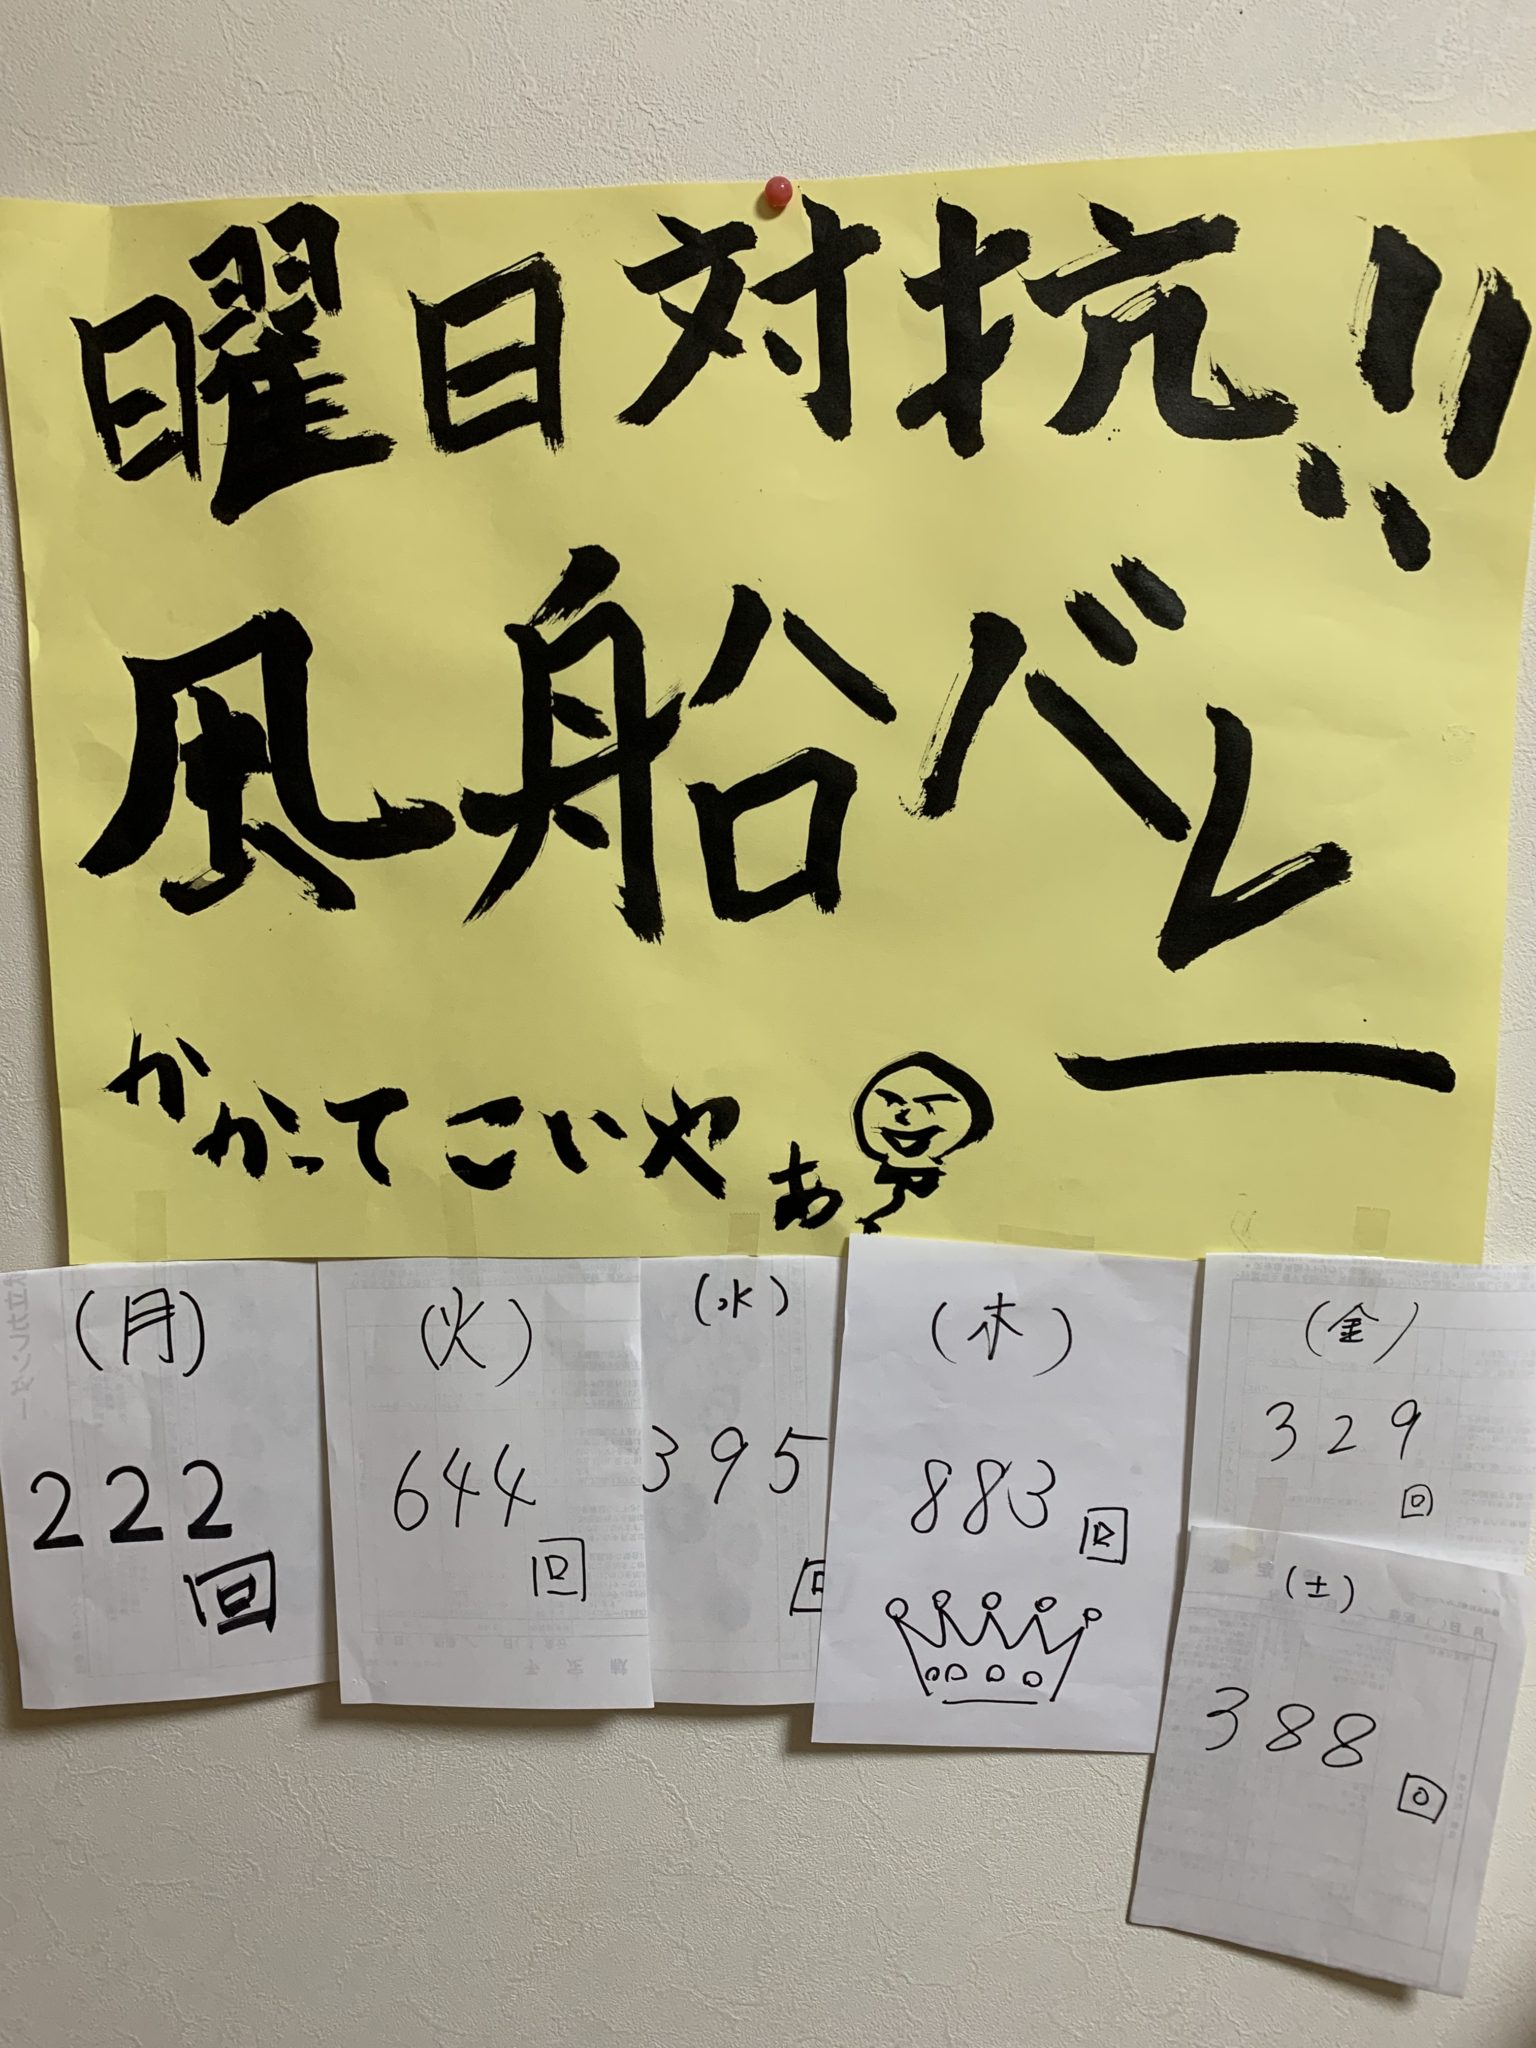 曜日対抗!!
風船バレー
かかってこいやぁ
(月)
222
回
(火)
644
回
(水)
395
回
(木)
883回
(金)
329
回
(土)
388
回